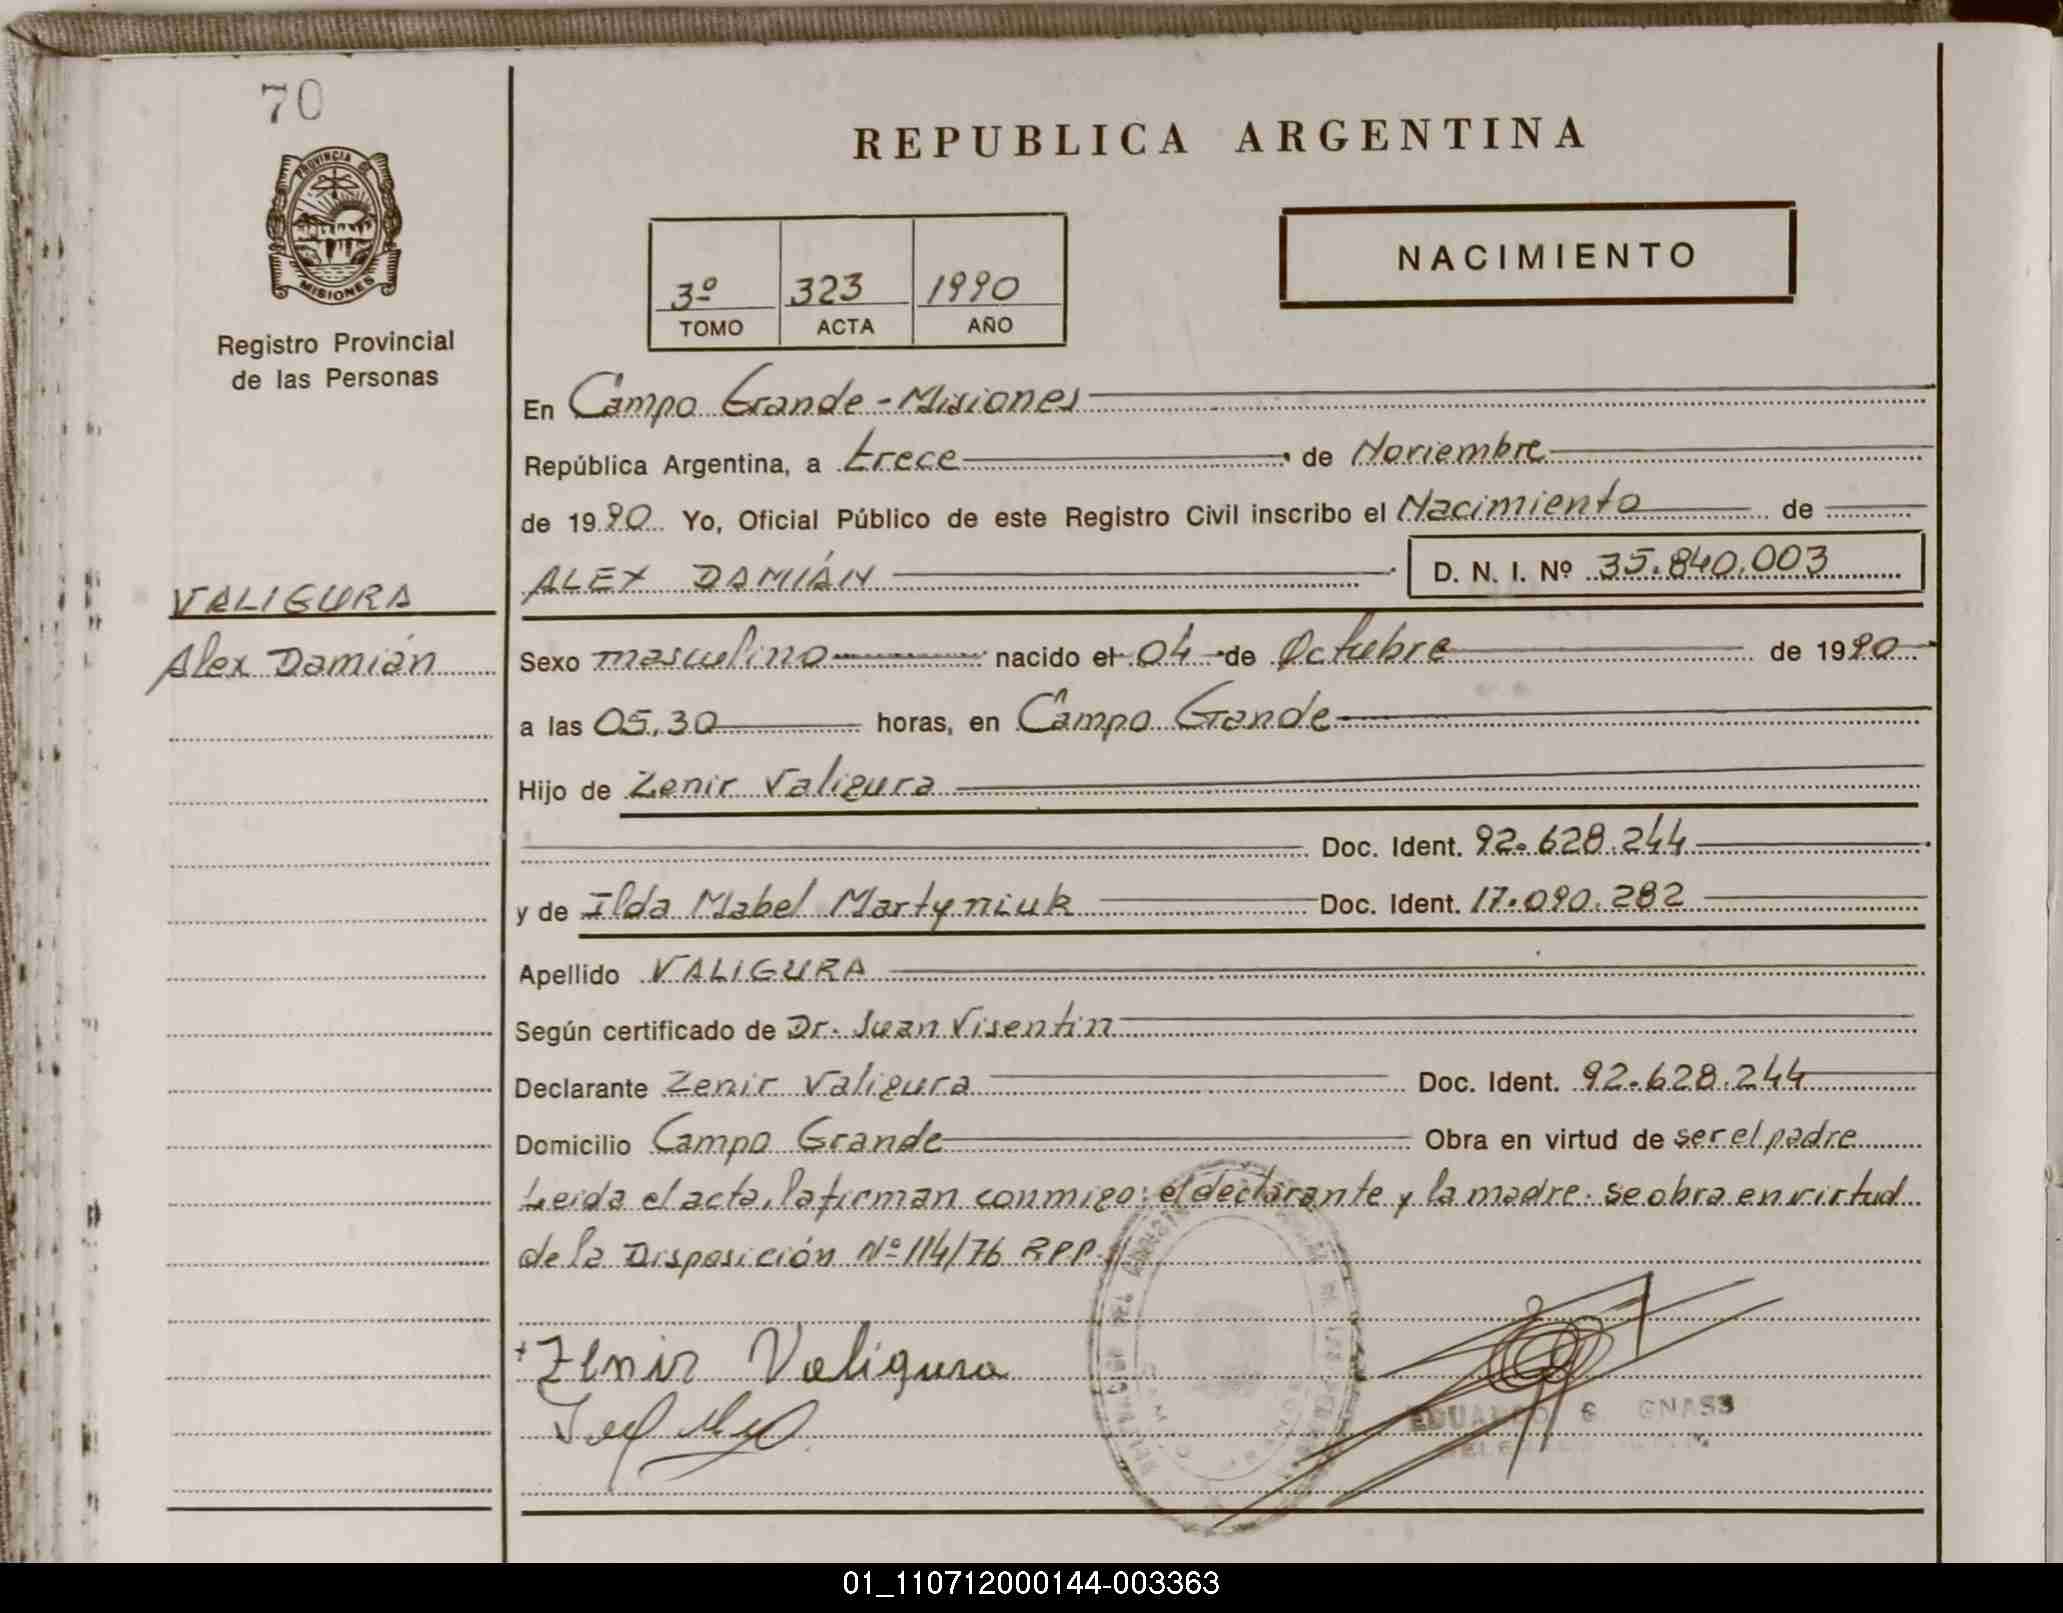 70
PROVINCIA DE
MISIONES
Registro Provincial
de las Personas
VALIGURA
Alex Damián
REPUBLICA ARGENTINA
NACIMIENTO
3º 323 1990
TOMO ACTA AÑO
En Campo Grande - Misiones
República Argentina, a trece de Noviembre
de 1990 Yo, Oficial Público de este Registro Civil inscribo el Nacimiento de
ALEX DAMIÁN D. N. I. Nº 35.840.003
Sexo masculino nacido el 04 de Octubre de 1990
a las 05,30 horas, en Campo Grande
Hijo de Zenir Valigura
Doc. Ident. 92.628.244
y de Ilda Mabel Martyniuk Doc. Ident. 17.090.282
Apellido VALIGURA
Según certificado de Dr. Juan Visentin
Declarante Zenir Valigura Doc. Ident. 92.628.244
Domicilio Campo Grande Obra en virtud de ser el padre
Leída el acta, la firman conmigo: el declarante y la madre. se obra en virtud
de la Disposición Nº 114/76 RPP.
Zenir Valigura
EDUARDO G. GNASS
01_110712000144-003363